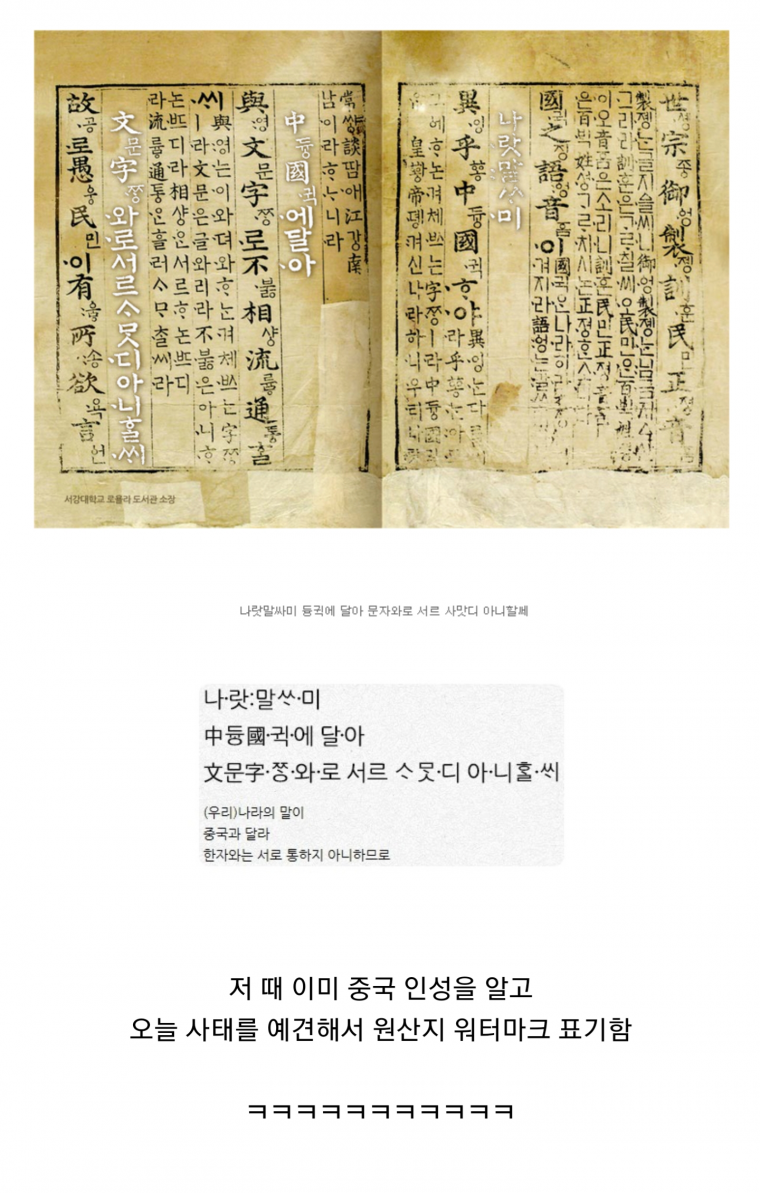 世솅宗종御엉製졩訓훈民민正졍音
製졩는글지슬씨니御엉製졩는님금지스샨
그리라訓훈은ᄀᆞᄅᆞ칠씨오民민은百ᄇᆡᆨ姓
이오音은소리니訓훈民민正졍音
은百ᄇᆡᆨ姓셩ᄀᆞᄅᆞ치시논正졍ᄒᆞᆫ소리라
國귁之징語엉音이
國귁은나라히라
겨지라語엉는말
나랏말ᄊᆞ미
異잉乎ᅘᅩᆼ中듕國귁ᄒᆞ야
異잉는다ᄅᆞᆯ씨
라乎ᅘᅩᆼ는아
그ᅌᅦᄒᆞ논겨체ᄡᅳ는字ᄍᆞᆼㅣ라中듕國귁
皇황帝뎽겨신나라히니우리나랏
常썅談땀애江강南
남이라ᄒᆞᄂᆞ니라
中듕國귁에달아
與영文문字ᄍᆞᆼ로不붏相샹流륭通통ᄒᆞᆯ
ᄊᆡ
與영는이와뎌와ᄒᆞ는겨체ᄡᅳ는字ᄍᆞᆼ
ㅣ라文문은글와리라不붏은아니ᄒᆞ
논ᄠᅳ디라相샹ᄋᆞᆫ서르ᄒᆞ논ᄠᅳ디
라流륭通통은흘러ᄉᆞᄆᆞᄎᆞᆯ씨라
文문字ᄍᆞᆼ와로서르ᄉᆞᄆᆞᆺ디아니ᄒᆞᆯᄊᆡ
故공로愚웅民민이有所송欲욕言언
서강대학교 로욜라 도서관 소장
나랏말싸미 듕귁에 달아 문자와로 서르 사맛디 아니할쎄
나·랏:말ᄊᆞ·미
中듕國·귁·에 달·아
文문字·ᄍᆞᆼ·와·로 서르 ᄉᆞᄆᆞᆺ·디 아·니ᄒᆞᆯ·ᄊᆡ
(우리)나라의 말이
중국과 달라
한자와는 서로 통하지 아니하므로
저 때 이미 중국 인성을 알고
오늘 사태를 예견해서 원산지 워터마크 표기함
ㅋㅋㅋㅋㅋㅋㅋㅋㅋㅋㅋ